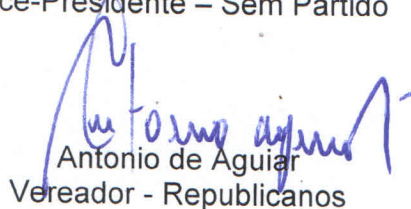 ce-Presidente – Sem Partido
Antonio aguiar
Antonio de Aguiar
Vereador - Republicanos